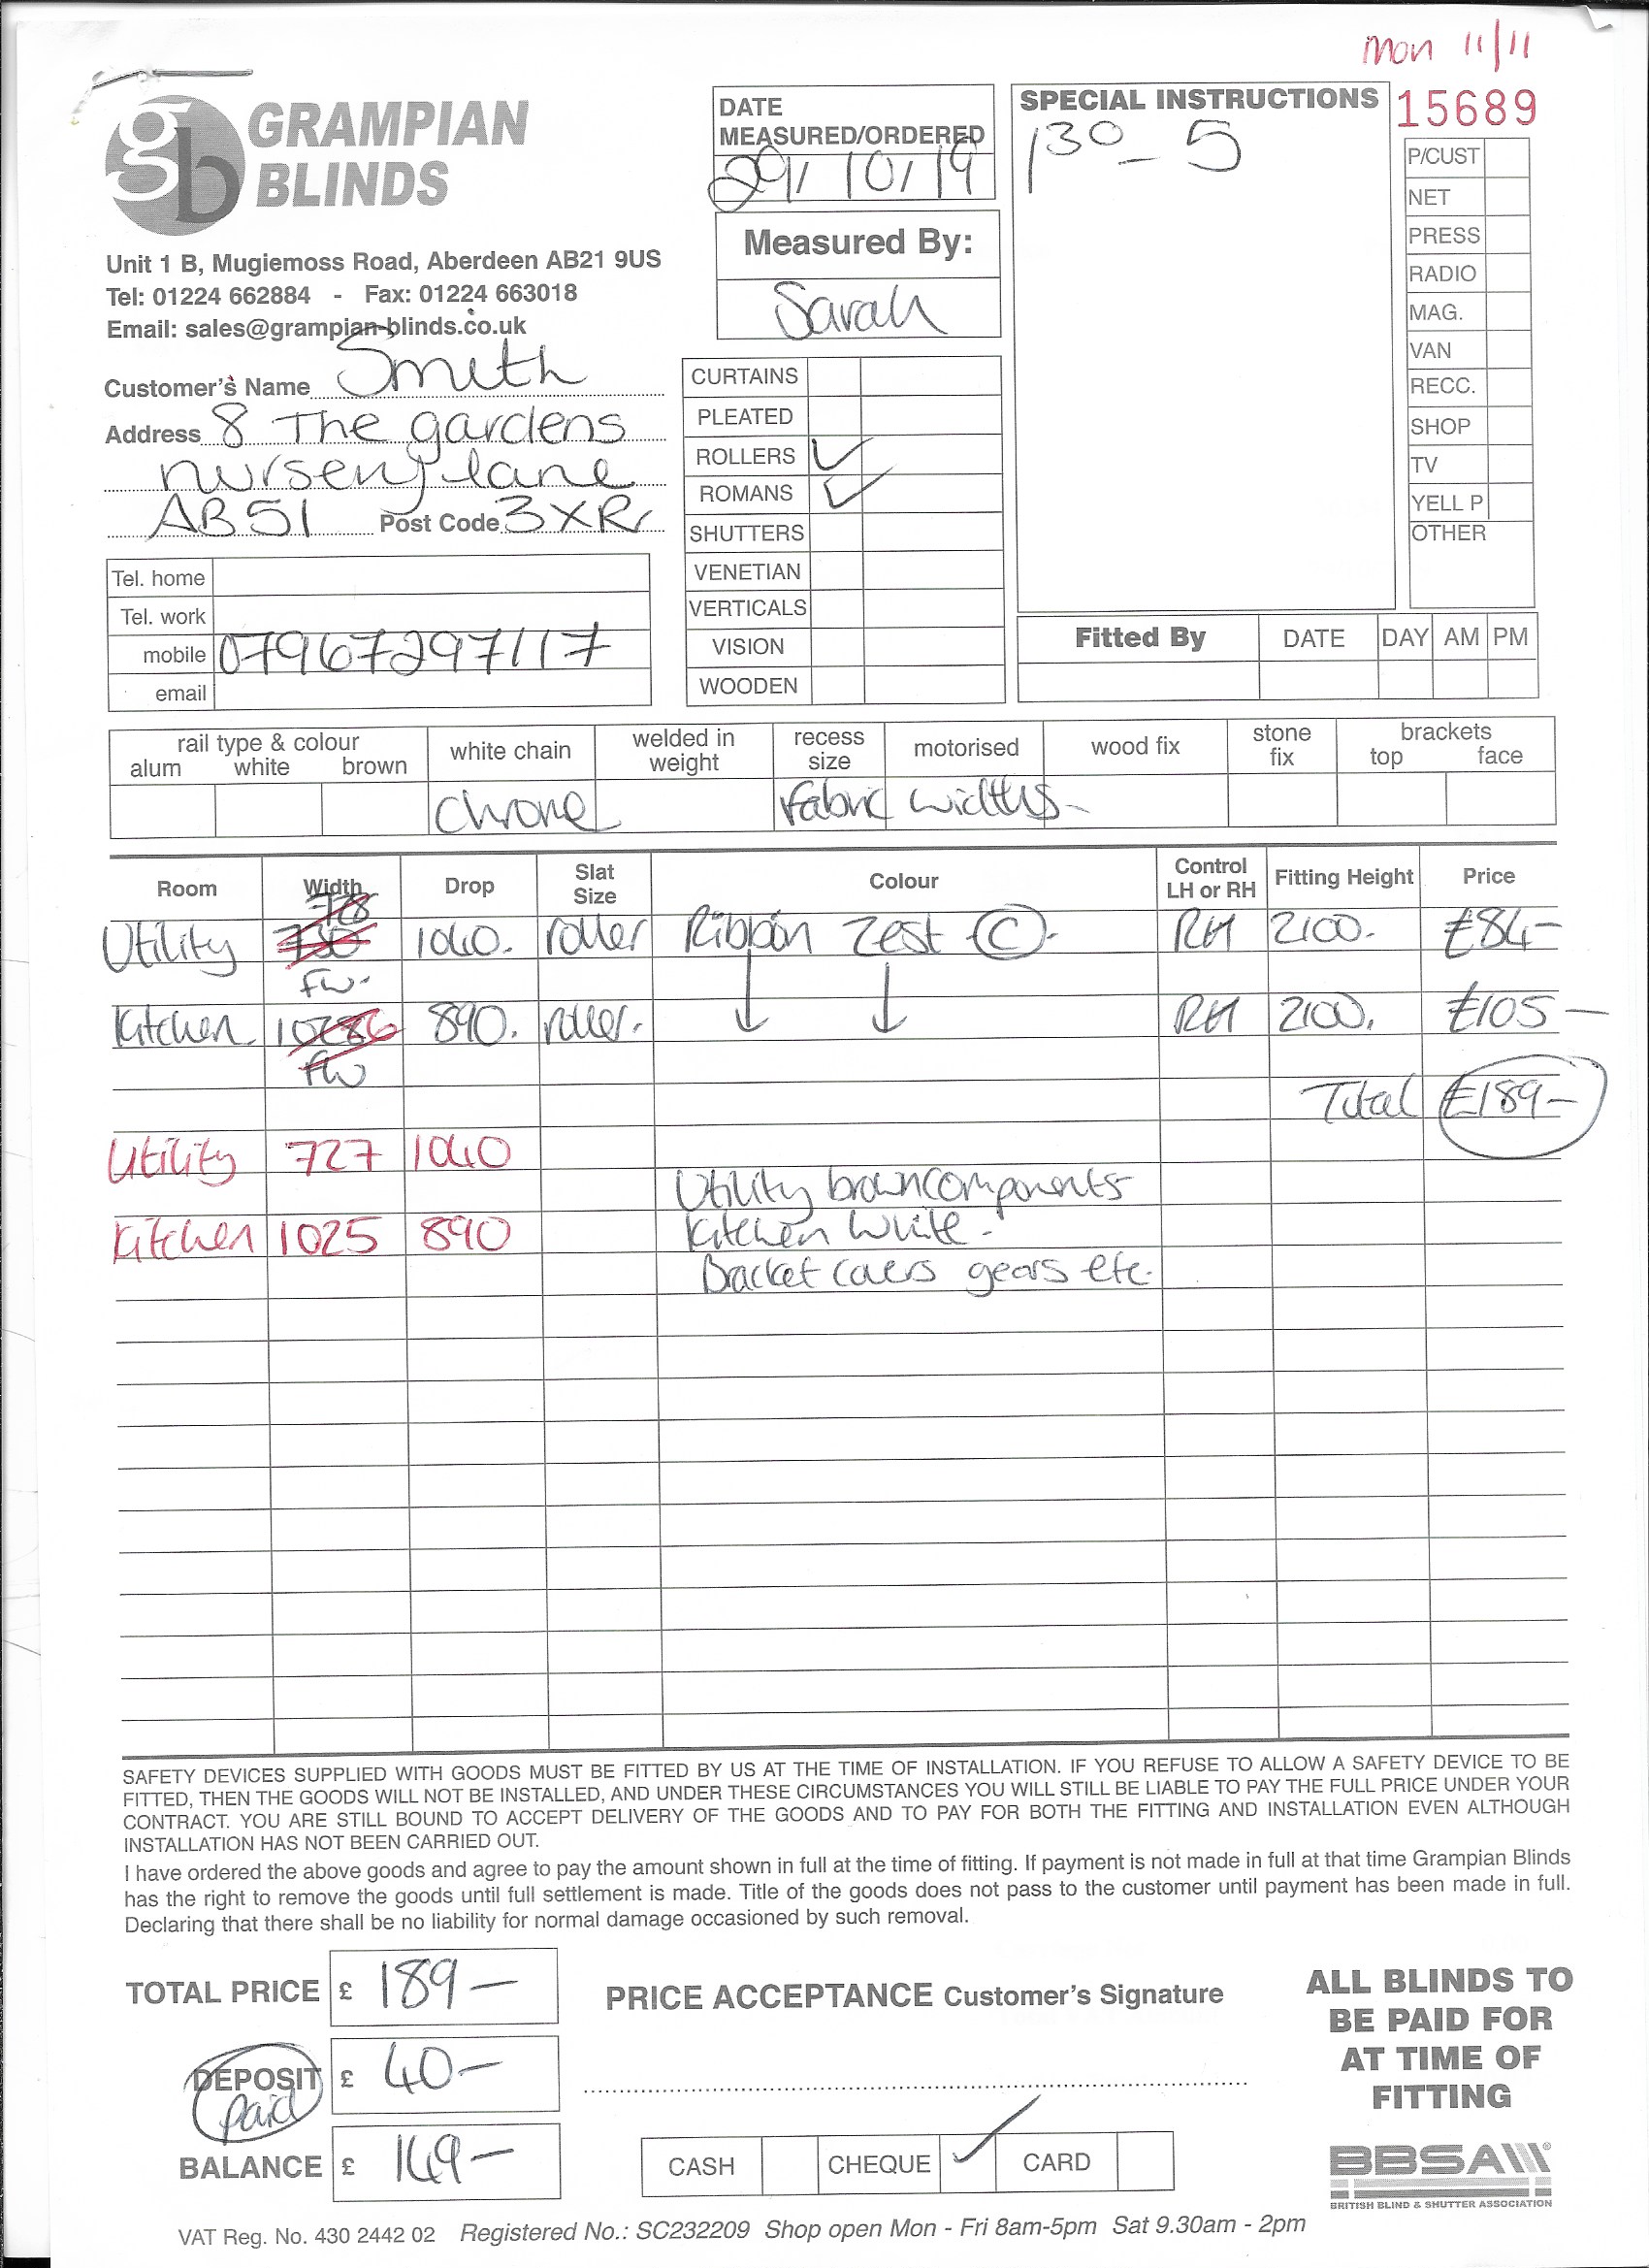 Mon 11/11
GRAMPIAN
BLINDS
gb
Unit 1 B, Mugiemoss Road, Aberdeen AB21 9US
Tel: 01224 662884 - Fax: 01224 663018
Email: sales@grampian-blinds.co.uk
Customer's Name Smith
Address 8 The gardens
nursery lane
AB51 Post Code 3XR
Tel. home
Tel. work
mobile 07967297117
email
DATE
MEASURED/ORDERED
29/10/19
Measured By:
Sarah
CURTAINS
PLEATED
ROLLERS ✓
ROMANS ✓
SHUTTERS
VENETIAN
VERTICALS
VISION
WOODEN
SPECIAL INSTRUCTIONS
130 - 5
15689
P/CUST
NET
PRESS
RADIO
MAG.
VAN
RECC.
SHOP
TV
YELL P
OTHER
Fitted By DATE DAY AM PM
rail type & colour white chain welded in weight recess size motorised wood fix stone fix brackets
alum white brown top face
Chrome Fabric widths-
Room Width Drop Slat Size Colour Control LH or RH Fitting Height Price
728
Utility 730 1040. roller Ribbon Zest (C). RH 2100. £84-
fw.
Kitchen 890. roller. ↓ ↓ RH 2100. £105-
fw
Total £189-
Utility 727 1040
Utility brown components
Kitchen 1025 890 Kitchen White-
Bracket covers gears etc.
SAFETY DEVICES SUPPLIED WITH GOODS MUST BE FITTED BY US AT THE TIME OF INSTALLATION. IF YOU REFUSE TO ALLOW A SAFETY DEVICE TO BE
FITTED, THEN THE GOODS WILL NOT BE INSTALLED, AND UNDER THESE CIRCUMSTANCES YOU WILL STILL BE LIABLE TO PAY THE FULL PRICE UNDER YOUR
CONTRACT. YOU ARE STILL BOUND TO ACCEPT DELIVERY OF THE GOODS AND TO PAY FOR BOTH THE FITTING AND INSTALLATION EVEN ALTHOUGH
INSTALLATION HAS NOT BEEN CARRIED OUT.
I have ordered the above goods and agree to pay the amount shown in full at the time of fitting. If payment is not made in full at that time Grampian Blinds
has the right to remove the goods until full settlement is made. Title of the goods does not pass to the customer until payment has been made in full.
Declaring that there shall be no liability for normal damage occasioned by such removal.
TOTAL PRICE £ 189-
DEPOSIT £ 40-
paid
BALANCE £ 149-
PRICE ACCEPTANCE Customer's Signature
CASH CHEQUE ✓ CARD
ALL BLINDS TO
BE PAID FOR
AT TIME OF
FITTING
BBSA
BRITISH BLIND & SHUTTER ASSOCIATION
VAT Reg. No. 430 2442 02 Registered No.: SC232209 Shop open Mon - Fri 8am-5pm Sat 9.30am - 2pm